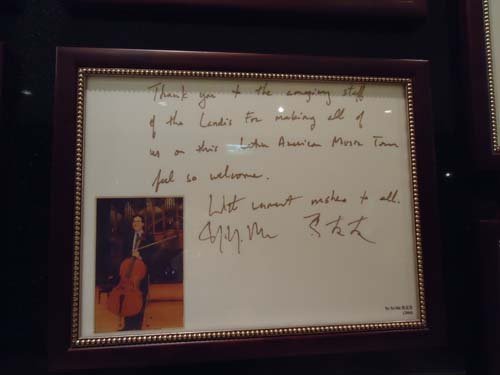 Thank you to the amazing staff
of the Landis For making all of
us on this Latin American Music Tour
feel so welcome.
With warmest wishes to all.
Yo-Yo Ma 马友友
Yo Yo Ma